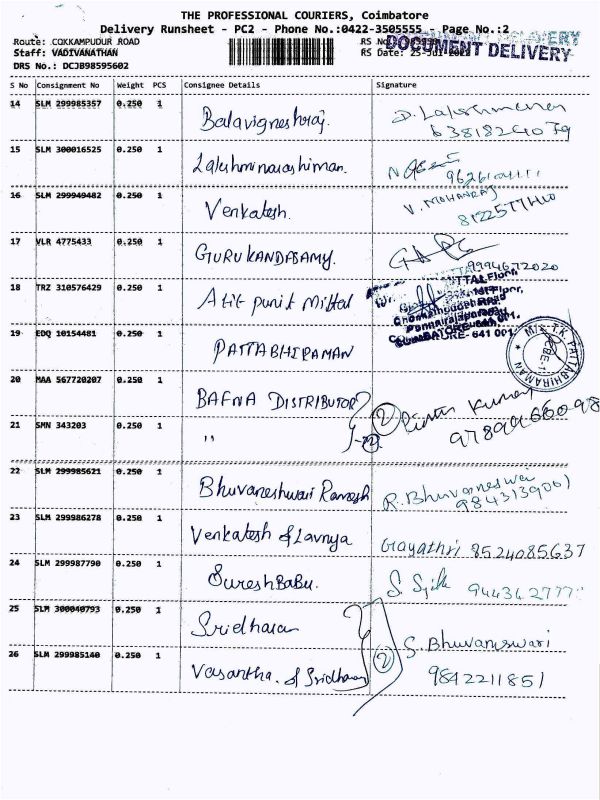 THE PROFESSIONAL COURIERS, Coimbatore
Delivery Runsheet - PC2 - Phone No.:0422-3505555 - Page No.:2
Route: COKKAMPUDUR ROAD
Staff: VADIVANATHAN RS Date: 25-Jul
DRS No.: DCJB98595602
DOCUMENT DELIVERY
S No Consignment No Weight PCS Consignee Details Signature
14 SLM 299985357 0.250 1 Balavigneshraj. D. Lakshmanan
15 SLM 300016525 0.250 1 Lakshminarashiman.
16 SLM 299949482 0.250 1 Venkatesh. V. MOHANRAJ
17 VLR 4775433 0.250 1 GURUKANDASAMY. 9994672020
18 TRZ 310576429 0.250 1 Atit punit Mittal
19 EDQ 10154481 0.250 1 PATTABHIRAMAN M/s. T.K. PATTABHIRAMAN
20 MAA 567720207 0.250 1 BAFNA DISTRIBUTOR Kumar
21 SMN 343203 0.250 1 ,, 2 9789966098
22 SLM 299985621 0.250 1 Bhuvaneshwari Ramesh R. Bhuvaneswari
9843139061
23 SLM 299986278 0.250 1 Venkatesh & Lavnya Gayathri 8524085637
24 SLM 299987790 0.250 1 SureshBabu.
25 SLM 300040793 0.250 1 Sridharan S. Bhuvaneswari
26 SLM 299985140 0.250 1 Vasantha. & Sridharan 2 9842211851